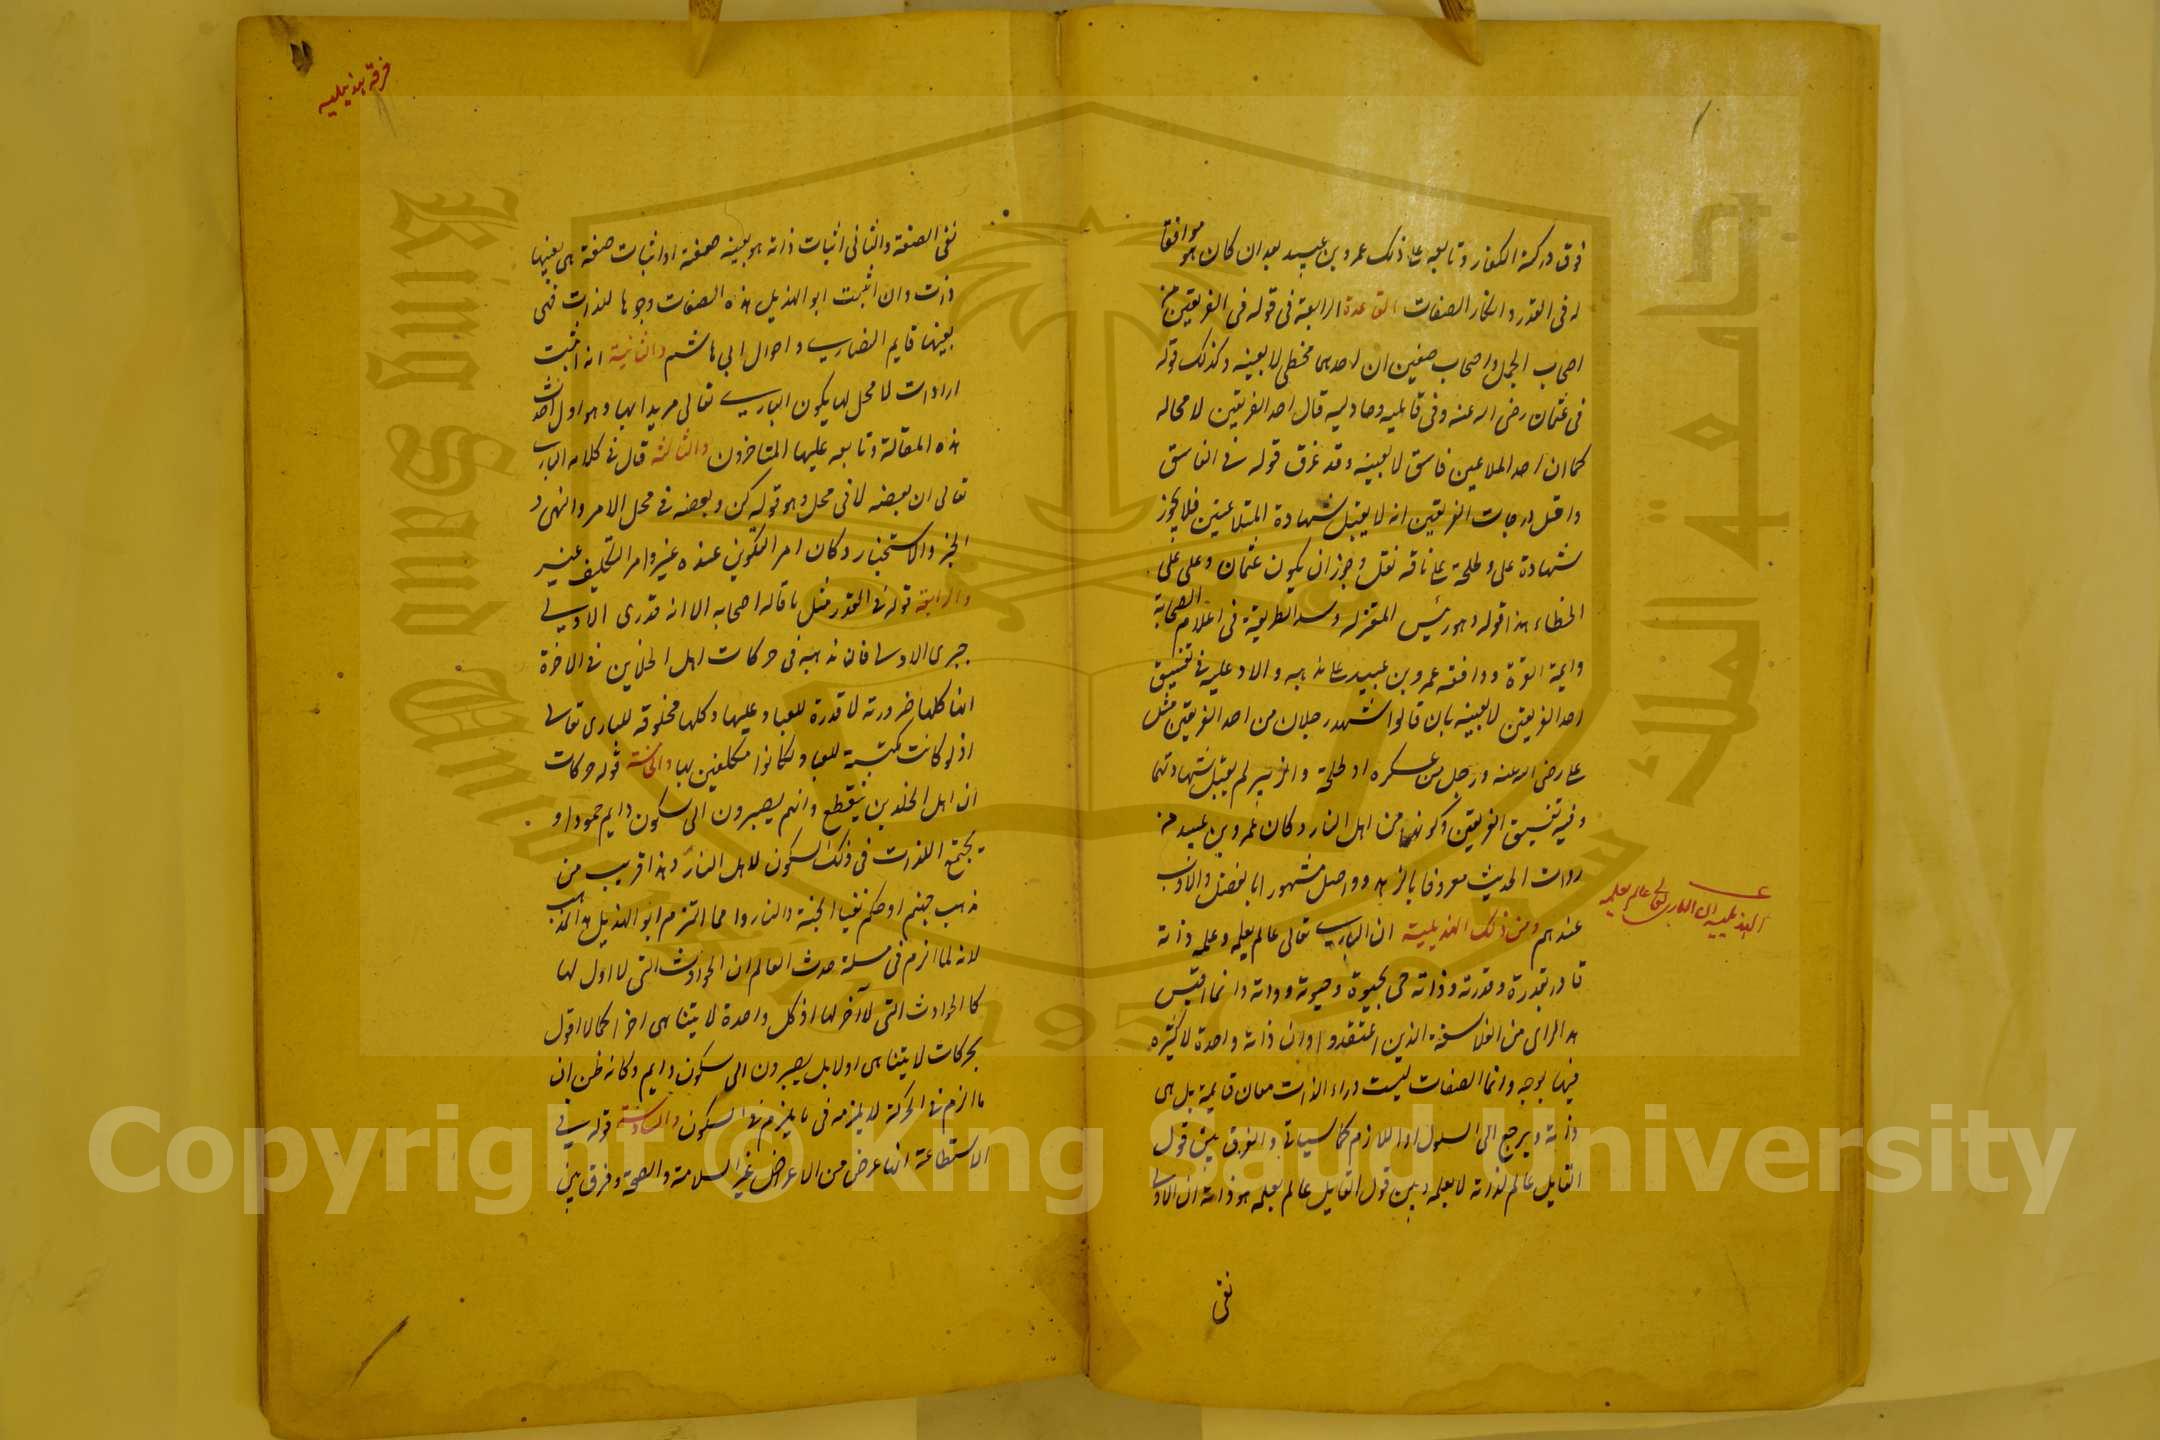 فوق دركة الكفار وتابعه على ذلك عمرو بن عبيد بعد ان كان هو موافقا
له في القدر وانكار الصفات القاعدة الرابعة في قوله في الفريقين من
اصحاب الجمل واصحاب صفين ان احدهما مخطئ لا بعينه وكذلك قوله
في عثمان رضي الله عنه وفي قاتليه وخاذليه قال احد الفريقين لا محاله
كما ان احد الملاعين فاسق لا بعينه وقد عرف قوله في الفاسق
واقل درجات الفريقين انه لا يقبل شهادة المتلاعنين فلا يجوز
شهادة علي وطلحة على باقة بقل وجوز ان يكون عثمان وعلي على
الخطاء هذا قوله وهو رئيس المعتزله وسد الطريقة في اعلام الصحابة
وايمة العترة ووافقه عمرو بن عبيد على مذهبه والاد عليه في تفسيق
احد الفريقين لا بعينه بان قالوا شهد رجلان من احد الفريقين مثل
علي رضي الله عنه ورجل من عسكره او طلحة والزبير لم يقبل شهادتهما
وفيه تفسيق الفريقين وكونهما من اهل النار وكان عمرو بن عبيد من
روات الحديث معروفا بالزهد وواصل مشهورا بالفضل والادب
عندهم ومن ذلك الهذيلية ان الباري تعالى عالم بعلم وعلمه ذاته
قادر بقدرة وقدرته وذاته حي بحيوة وحيوته وذاته وانما اقتبس
هذا الراي من الفلاسفة الذين اعتقدوا وان ذاته واحدة لا كثيرة
فيها بوجه وانما الصفات ليست وراء الذات معان قايمة بل هي
ذاته ويرجع الى السلول او اللازم كما سياتي والفرق بين قول
القايل عالم لذاته لا بعلم وبين قول القايل عالم بعلم هو ذاته ان الاول
نفي
الهذيلية ان الباري تعالى عالم بعلم
فرقة هذيلية
نفي الصفة والثاني اثبات ذاته هو بعينه صفة او اثبات صفة هي بعينها
ذات وان اثبت ابو الهذيل هذه الصفات وجوها للذات فهي
بعينها قايم النصارى واحوال ابي هاشم والثانية انه اثبت
ارادات لا محل لها يكون الباري تعالى مريدا بها وهو اول احدث
هذه المقالة وتابعه عليها المتاخرون والثالثة قال في كلام الباري
تعالى ان بعضه لا في محل وهو قوله كن وبعضه في محل الامر والنهي و
الخبر والاستخبار وكان امر التكوين عنده غير امر التكليف
والرابعة قوله في القدر مثل ما قاله اصحابه الا انه قدري الاولى
جبري الاولى فان مذهبه في حركات اهل الخلدين في الاخرة
انها كلها ضرورته لا قدرة للعباد عليها وكلها مخلوقه للباري تعالى
اذ لو كانت مكتسبة للعباد لكانوا مكلفين بها والخامسة قوله حركات
ان اهل الخلدين ينقطع وانهم يصيرون الى سكون دايم خمودا و
يجتمع اللذات في ذلك السكون لاهل النار وهذا قريب من
مذهب جهنم اذ حكم نفيا الجنة والنار وامما التزم ابو الهذيل هذا المذهب
لانه لما الزم في مسئلة حدث العالم ان الحوادث التي لا اول لها
كالحوادث التي لا آخر لها اذ كل واحدة لا يتناهى اخر كما لا اقول
بحركات لا يتناهى اولا بل يصيرون الى سكون دايم وكانه ظن ان
ما الزم في الحركة لم يلزمه في ما يلزم في السكون والسادسة قوله في
الاستطاعة انها عرض من الاعراض غير السلامة والصحة وفرق بين